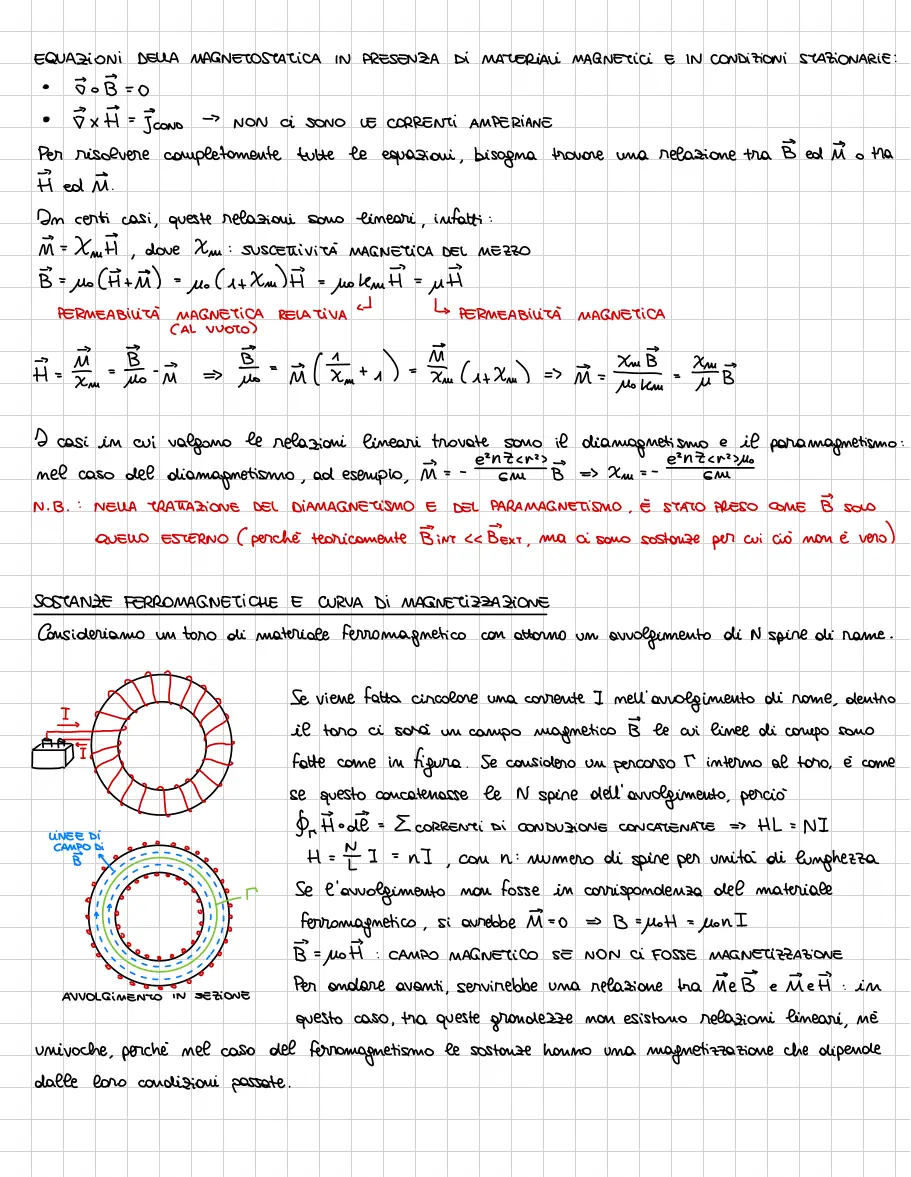 EQUAZIONI DELLA MAGNETOSTATICA IN PRESENZA DI MATERIALI MAGNETICI E IN CONDIZIONI STAZIONARIE:
• ∇⃗∘B⃗ = 0
• ∇⃗×H⃗ = J⃗COND → NON CI SONO LE CORRENTI AMPERIANE
Per risolvere completamente tutte le equazioni, bisogna trovare una relazione tra B⃗ ed M⃗ o tra
H⃗ ed M⃗.
In certi casi, queste relazioni sono lineari, infatti:
M⃗ = χₘH⃗, dove χₘ: SUSCETTIVITÀ MAGNETICA DEL MEZZO
B⃗ = μ₀(H⃗+M⃗) = μ₀(1+χₘ)H⃗ = μ₀kₘH⃗ = μH⃗
PERMEABILITÀ MAGNETICA RELATIVA ↲ ↳ PERMEABILITÀ MAGNETICA
(AL VUOTO)
H⃗ = M⃗/χₘ = B⃗/μ₀ - M⃗ ⇒ B⃗/μ₀ = M⃗(1/χₘ + 1) = M⃗/χₘ (1+χₘ) => M⃗ = χₘB⃗/μ₀kₘ = χₘ/μ B⃗
I casi in cui valgono le relazioni lineari trovate sono il diamagnetismo e il paramagnetismo:
nel caso del diamagnetismo, ad esempio, M⃗ = - e²nZ<r²>/6m B⃗ => χₘ = - e²nZ<r²>μ₀/6m
N.B.: NELLA TRATTAZIONE DEL DIAMAGNETISMO E DEL PARAMAGNETISMO, È STATO PRESO COME B⃗ SOLO
QUELLO ESTERNO (perché teoricamente B⃗INT << B⃗EXT, ma ci sono sostanze per cui ciò non è vero)
SOSTANZE FERROMAGNETICHE E CURVA DI MAGNETIZZAZIONE
Consideriamo un toro di materiale ferromagnetico con attorno un avvolgimento di N spire di rame.
I
I
Se viene fatta circolare una corrente I nell'avvolgimento di rame, dentro
il toro ci sarà un campo magnetico B⃗ le cui linee di campo sono
fatte come in figura. Se considero un percorso Γ interno al toro, è come
se questo concatenasse le N spire dell'avvolgimento, perciò
∮Γ H⃗∘dℓ⃗ = Σ CORRENTI DI CONDUZIONE CONCATENATE => HL = NI
H = N/L I = nI, con n: numero di spire per unità di lunghezza
Se l'avvolgimento non fosse in corrispondenza del materiale
ferromagnetico, si avrebbe M⃗=0 => B=μ₀H=μ₀nI
B⃗=μ₀H⃗ : CAMPO MAGNETICO SE NON CI FOSSE MAGNETIZZAZIONE
Per andare avanti, servirebbe una relazione tra M⃗ e B⃗ e M⃗ e H⃗: in
questo caso, tra queste grandezze non esistono relazioni lineari, né
univoche, perché nel caso del ferromagnetismo le sostanze hanno una magnetizzazione che dipende
dalle loro condizioni passate.
LINEE DI
CAMPO DI
B⃗
Γ
AVVOLGIMENTO IN SEZIONE